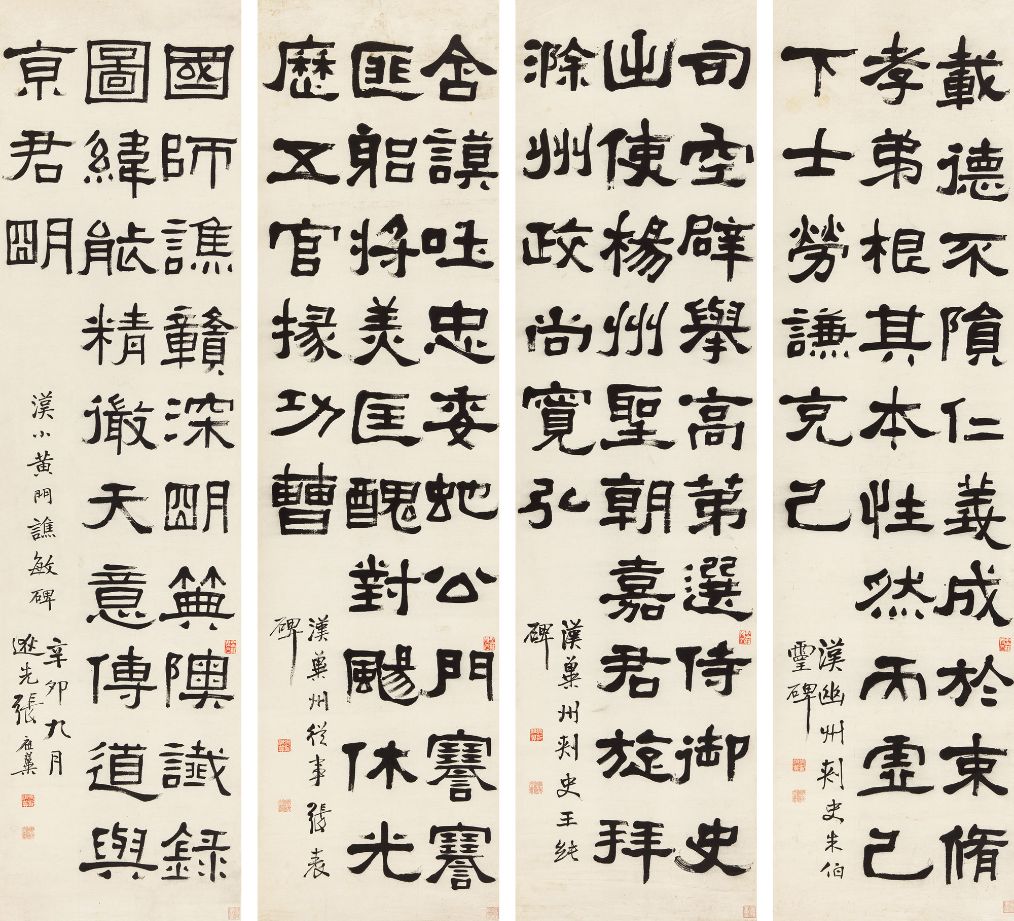 載德不隕仁義成於束脩
孝弟根其本性然而虛己
下士勞謙克己
漢幽州刺史朱伯
靈碑
司空辟舉高第選侍御史
出使楊州聖朝嘉君旋拜
滁州政尚寬弘
漢冀州刺史王純
碑
含謨吐忠委虵公門謇謇
匪躬將美匡醜對颺休光
歷五官掾功曹
漢冀州從事張表
碑
國師譙贛深明典隩讖錄
圖緯能精徹天意傳道與
京君明
漢小黃門譙敏碑
辛卯九月
逖先張祖翼